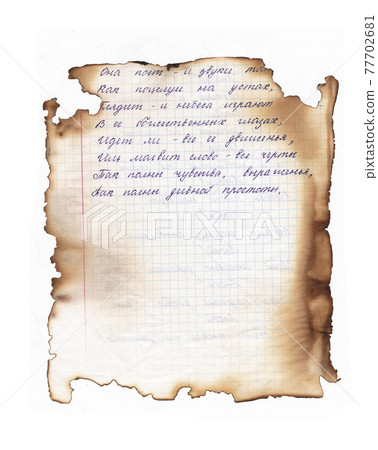 Она поет - и звуки та
Как поцелуи на устах,
Глядит - и небеса играют
В ее божественных глазах,
Идет ли - все ее движенья,
Иль молвит слово - все черты
Так полны чувства, выраженья,
Так полны дивной простоты.
PIXTA
pixta.jp - 77702681